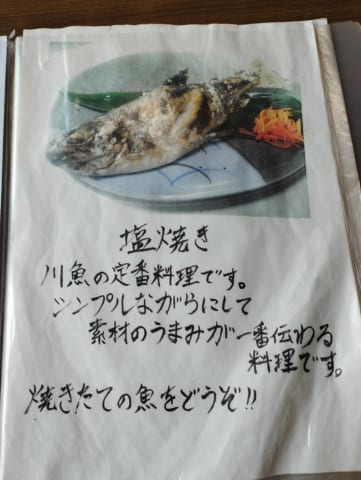 塩焼き
川魚の定番料理です。
シンプルながらにして
素材のうまみが一番伝わる
料理です。
焼きたての魚をどうぞ!!